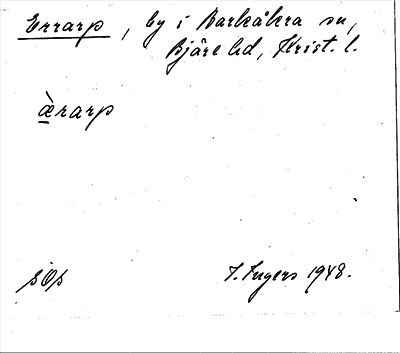 Errarp, by i Barkåkra sn,
Bjäre hd, Krist. l.
æ̀rarp
I. Ingers 1948.